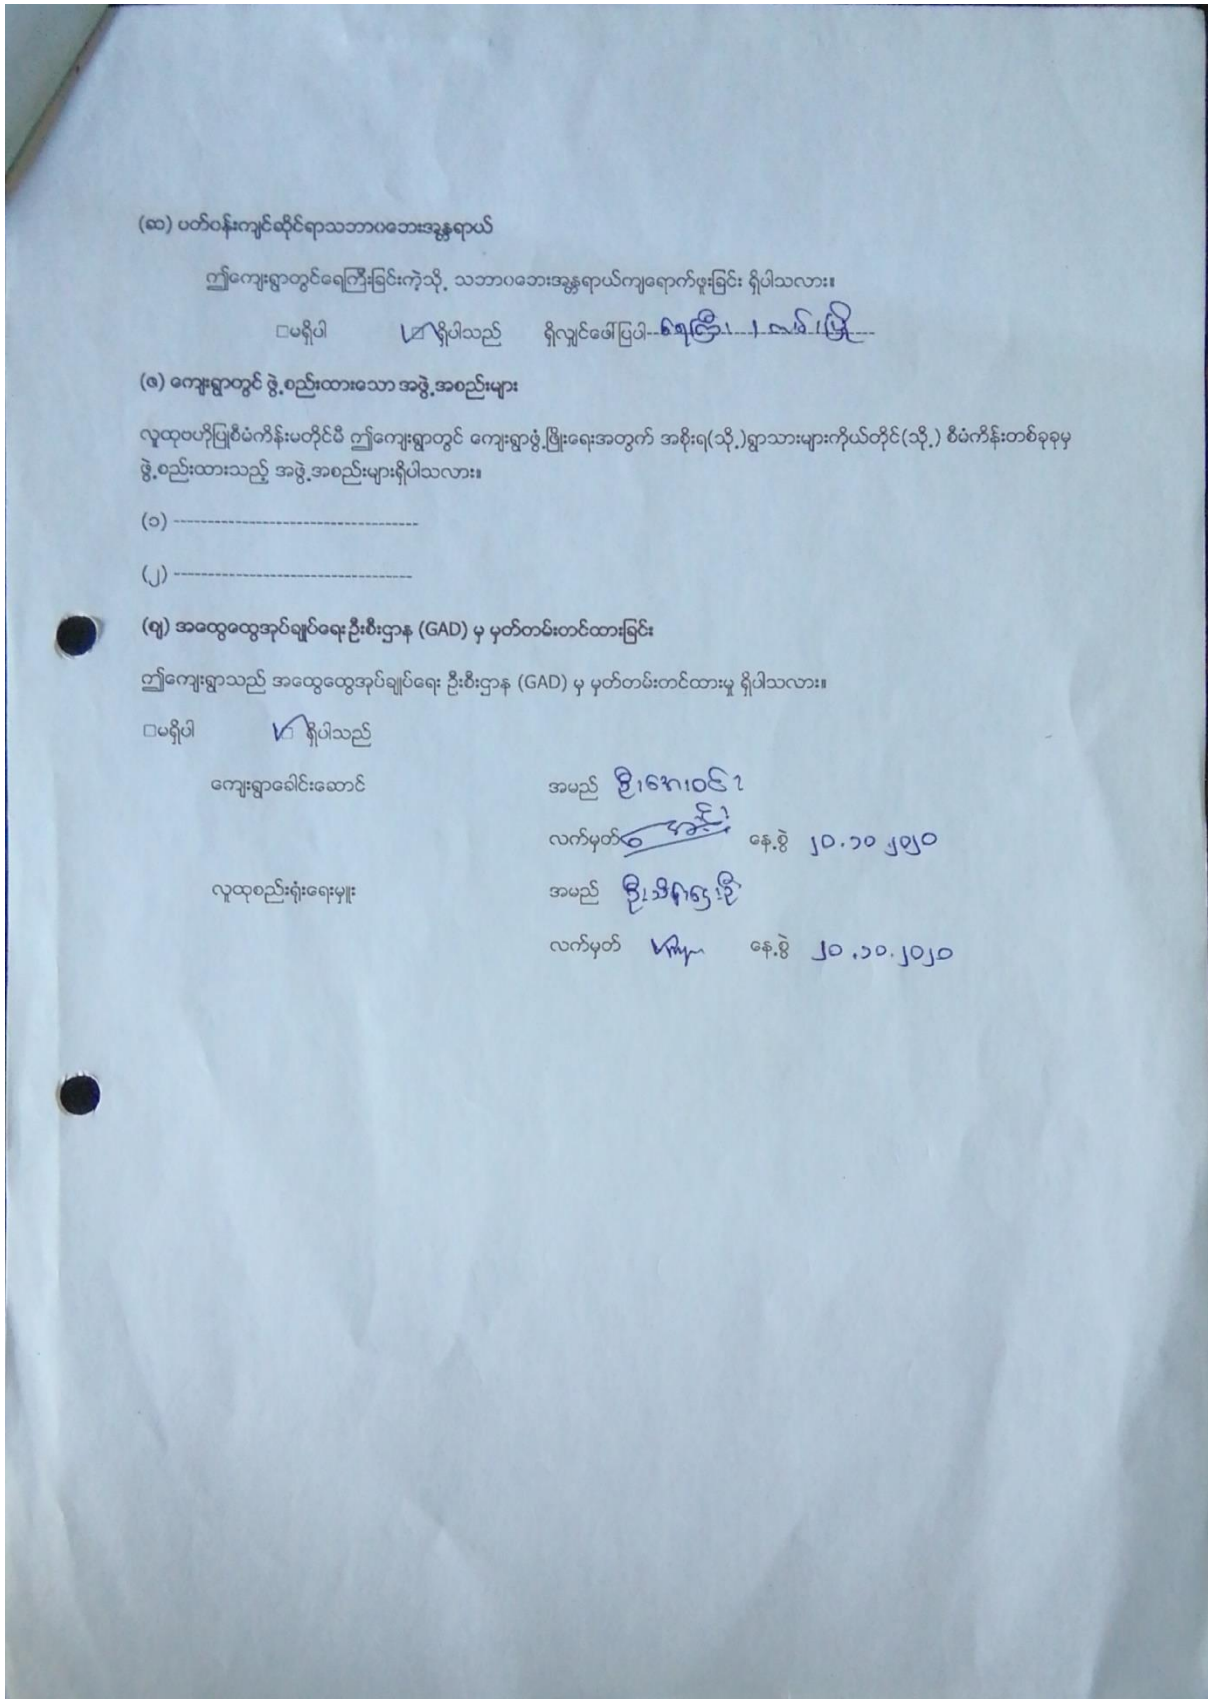 (ဆ) ပတ်ဝန်းကျင်ဆိုင်ရာသဘာဝဘေးအန္တရာယ်
ဤကျေးရွာတွင်ရေကြီးခြင်းကဲ့သို့ သဘာဝဘေးအန္တရာယ်ကျရောက်ဖူးခြင်း ရှိပါသလား။
□မရှိပါ ☑ရှိပါသည် ရှိလျှင်ဖေါ်ပြပါ--ရေကြီး၊
(ဇ) ကျေးရွာတွင် ဖွဲ့စည်းထားသော အဖွဲ့အစည်းများ
လူထုဗဟိုပြုစီမံကိန်းမတိုင်မီ ဤကျေးရွာတွင် ကျေးရွာဖွံ့ဖြိုးရေးအတွက် အစိုးရ(သို့)ရွာသားများကိုယ်တိုင်(သို့) စီမံကိန်းတစ်ခုခုမှ
ဖွဲ့စည်းထားသည့် အဖွဲ့အစည်းများရှိပါသလား။
(၁) ------------------------------------
(၂) -----------------------------------
(ဈ) အထွေထွေအုပ်ချုပ်ရေးဦးစီးဌာန (GAD) မှ မှတ်တမ်းတင်ထားခြင်း
ဤကျေးရွာသည် အထွေထွေအုပ်ချုပ်ရေး ဦးစီးဌာန (GAD) မှ မှတ်တမ်းတင်ထားမှု ရှိပါသလား။
□မရှိပါ ☑ ရှိပါသည်
ကျေးရွာခေါင်းဆောင် အမည် ဦးအေးဝင်း
လက်မှတ် နေ့စွဲ ၂၀.၁၀.၂၀၂၀
လူထုစည်းရုံးရေးမှူး အမည်
လက်မှတ် နေ့စွဲ ၂၀.၁၀.၂၀၂၀